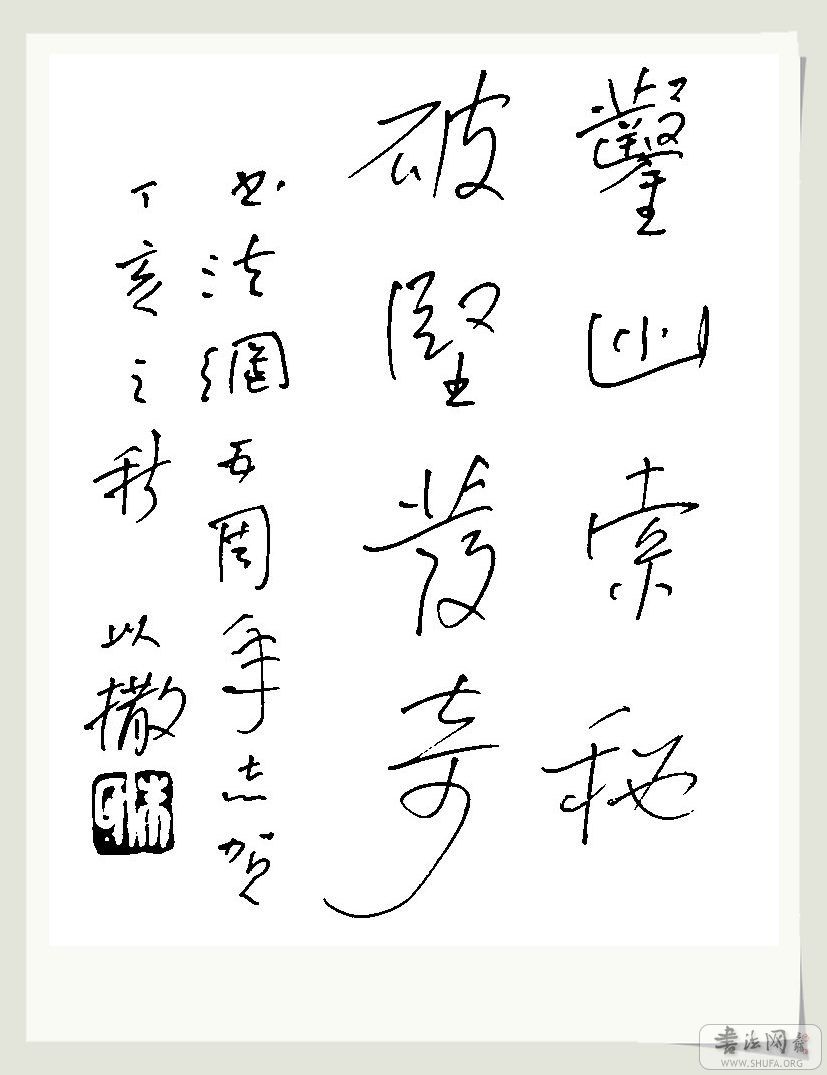 鑿幽索秘
破堅發奇
书法網五周年志賀
丁亥之秋 以撒
書法网
WWW.SHUFA.ORG